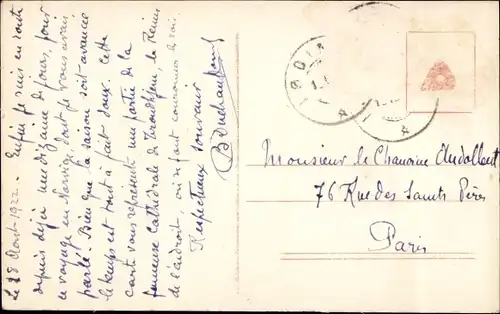 Le 28 Août 1922. Enfin je suis en route
depuis déjà une dizaine de jours, pour
ce voyage en Norvège, dont je vous avais
parlé. Bien que la saison soit avancée
le temps est tout à fait doux. Cette
carte vous représente une partie de la
fameuse Cathédrale de Trondhjem, la Reims
de l'endroit, où se font couronner les rois.
Respectueux souvenir
Monsieur le Chanoine Audollent
76 Rue des Saints Pères
Paris